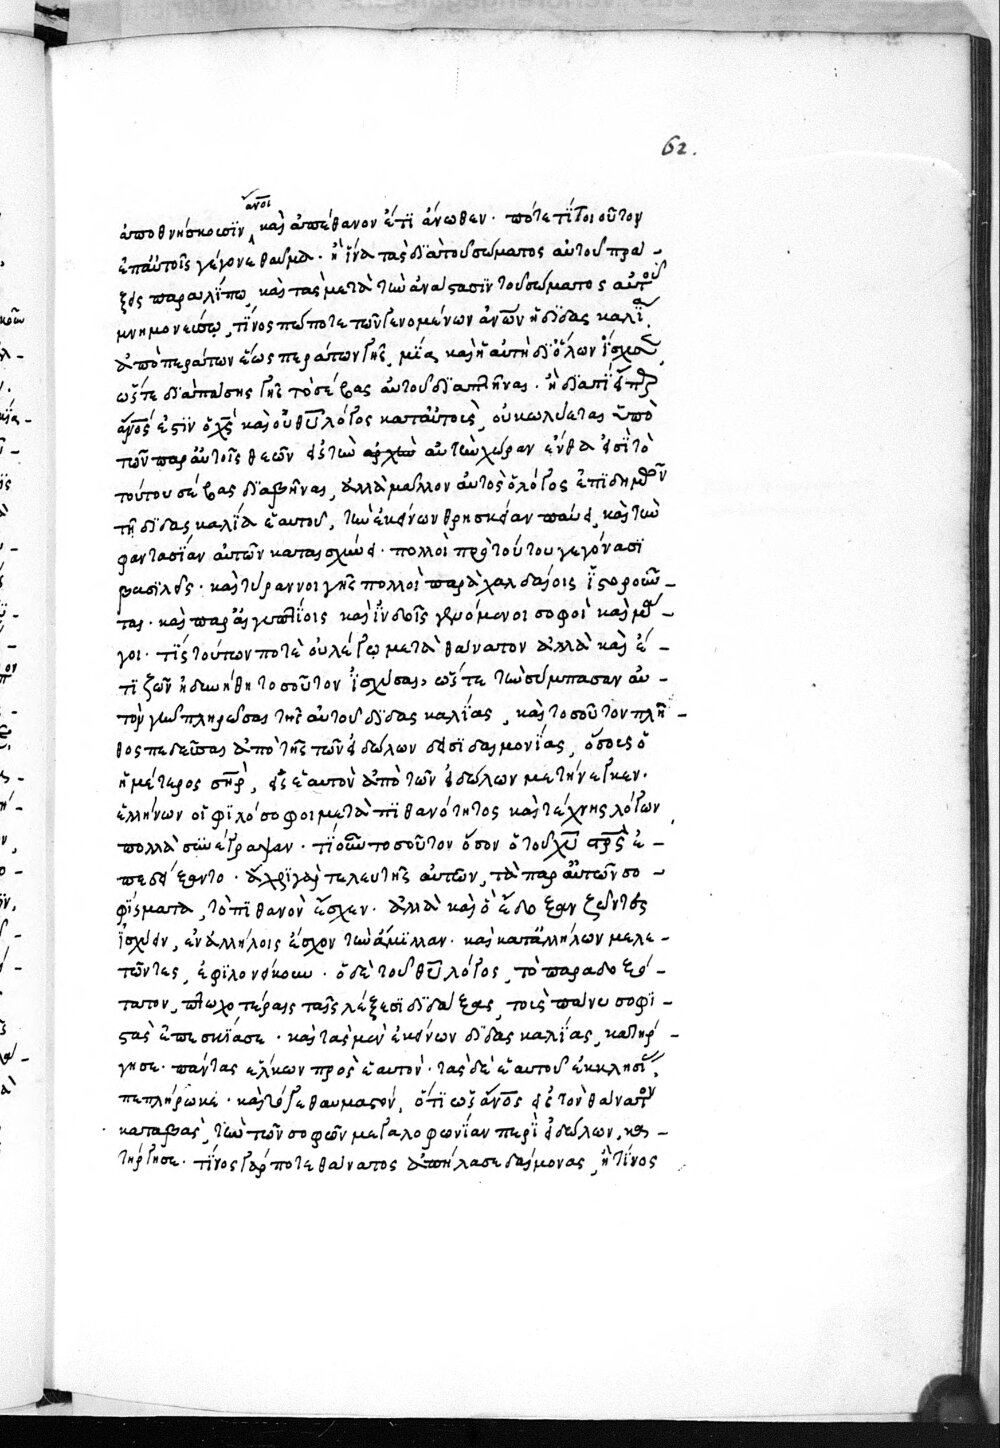 62.
ἄνοι
ἀποθνήσκουσϊν καὶ ἀπέθανον ἔτϊ ἄνωθεν· πότε τϊ τοιοῦτον
ἐπ' αὐτοῖς γέγονε θαῦμα· ἢ ἵνα τὰς δϊὰ τοῦ σώματος αὐτοῦ πρά-
ξεις παραλίπω, καὶ τὰς μετὰ τὴν ἀνάστασϊν τοῦ σώματος αὐτοῦ
μνημονεύσω, τίνος πώποτε τῶν γενομένων ἀνων ἡ δϊδασκαλϊα
ἀπὸ περάτων ἕως περάτων γῆς, μία καὶ ἡ αὐτὴ δϊ' ὅλων ἴσχυσεν
ὥστε δϊὰ πάσης γῆς τὸ σέβας αὐτοῦ δϊαπτῆναι· ἢ δϊατϊ εἴπερ
ἄνος ἐστϊν ὁ χς καὶ οὐ θυ λόγος κατ' αὐτοὺς, οὐ κωλύεται ὑπὸ
τῶν παρ' αὐτοῖς θεῶν εἰς τὴν αὐτὴν χώραν ἔνθα εἰσϊ τὸ
τούτου σέβας δϊαβῆναι, ἀλλὰ μᾶλλον αὐτὸς ὁ λόγος ἐπϊδημῶν
τῇ δϊδασκαλϊᾳ ἑαυτοῦ, τὴν ἐκείνων θρησκείαν παύει, καὶ τὴν
φαντασϊαν αὐτῶν καταισχύνει· πολλοὶ πρὸ τούτου γεγόνασϊ
βασϊλεῖς· καὶ τύραννοι γῆς πολλοὶ παρὰ χαλδαίοις ἱστοροῦν-
ται· καὶ παρ' αἰγυπτίοις καὶ ϊνδοῖς γενόμενοι σοφοὶ καὶ μά-
γοι· τϊς τούτων ποτὲ οὐ λέγω μετὰ θάνατον ἀλλὰ καὶ ἔ-
τϊ ζῶν ἠδυνήθη τοσοῦτον ἰσχῦσαι, ὥστε τὴν σύμπασαν αὐ-
τὸν γῆν πληρῶσαι τῆς αὐτοῦ δϊδασκαλϊας, καὶ τοσοῦτον πλῆ-
θος παιδεῦσαι ἀπὸ τῆς τῶν εἰδώλων δεισϊδαιμονϊας, ὅσους ὁ
ἡμέτερος σηρ, εἰς ἑαυτὸν ἀπὸ τῶν εἰδώλων μετήνεγκεν·
ἑλλήνων οἱ φϊλόσοφοι μετὰ πϊθανότητος καὶ τέχνης λόγων
πολλὰ συνέγραψαν· τϊ οὖν τοσοῦτον ὅσον ὁ τοῦ χυ στρς ἐ-
πεδείξαντο· ἄχρϊ γὰρ τελευτῆς αὐτῶν, τὰ παρ' αὐτῶν σο-
φϊσματα, τὸ πϊθανὸν ἔσχεν· ἀλλὰ καὶ ὃ ἔδοξαν ζῶντες
ἰσχύειν, ἐν ἀλλήλοις ἔσχον τὴν ἅμϊλλαν· καὶ κατ' ἀλλήλων μελε-
τῶντες, ἐφϊλονείκουν· ὁ δὲ τοῦ θυ λόγος, τὸ παραδοξό-
τατον, πτωχοτέραις ταῖς λέξεσϊ δϊδάξας, τοὺς πάνυ σοφϊ-
στὰς ἐπεσκϊασε· καὶ τὰς μὲν ἐκείνων δϊδασκαλϊας, κατήρ-
γησε· πάντας ἕλκων πρὸς ἑαυτὸν· τὰς δὲ ἑαυτοῦ ἐκκλησϊας,
πεπλήρωκε· καὶ τό γε θαυμαστόν, ὅτϊ ὡς ἄνος εἰς τὸν θάνατον
καταβὰς, τὴν τῶν σοφῶν μεγαλοφωνϊαν περὶ εἰδώλων, κα-
τήργησε· τίνος γάρ ποτε θάνατος ἀπήλασε δαίμονας, ἢ τίνος